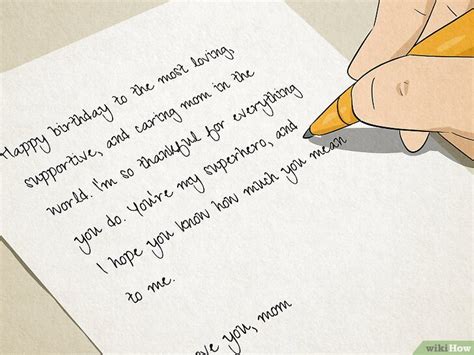 Happy birthday to the most loving,
supportive, and caring mom in the
world. I'm so thankful for everything
you do. You're my superhero, and
I hope you know how much you mean
to me.
ve you, mom
wikiHow